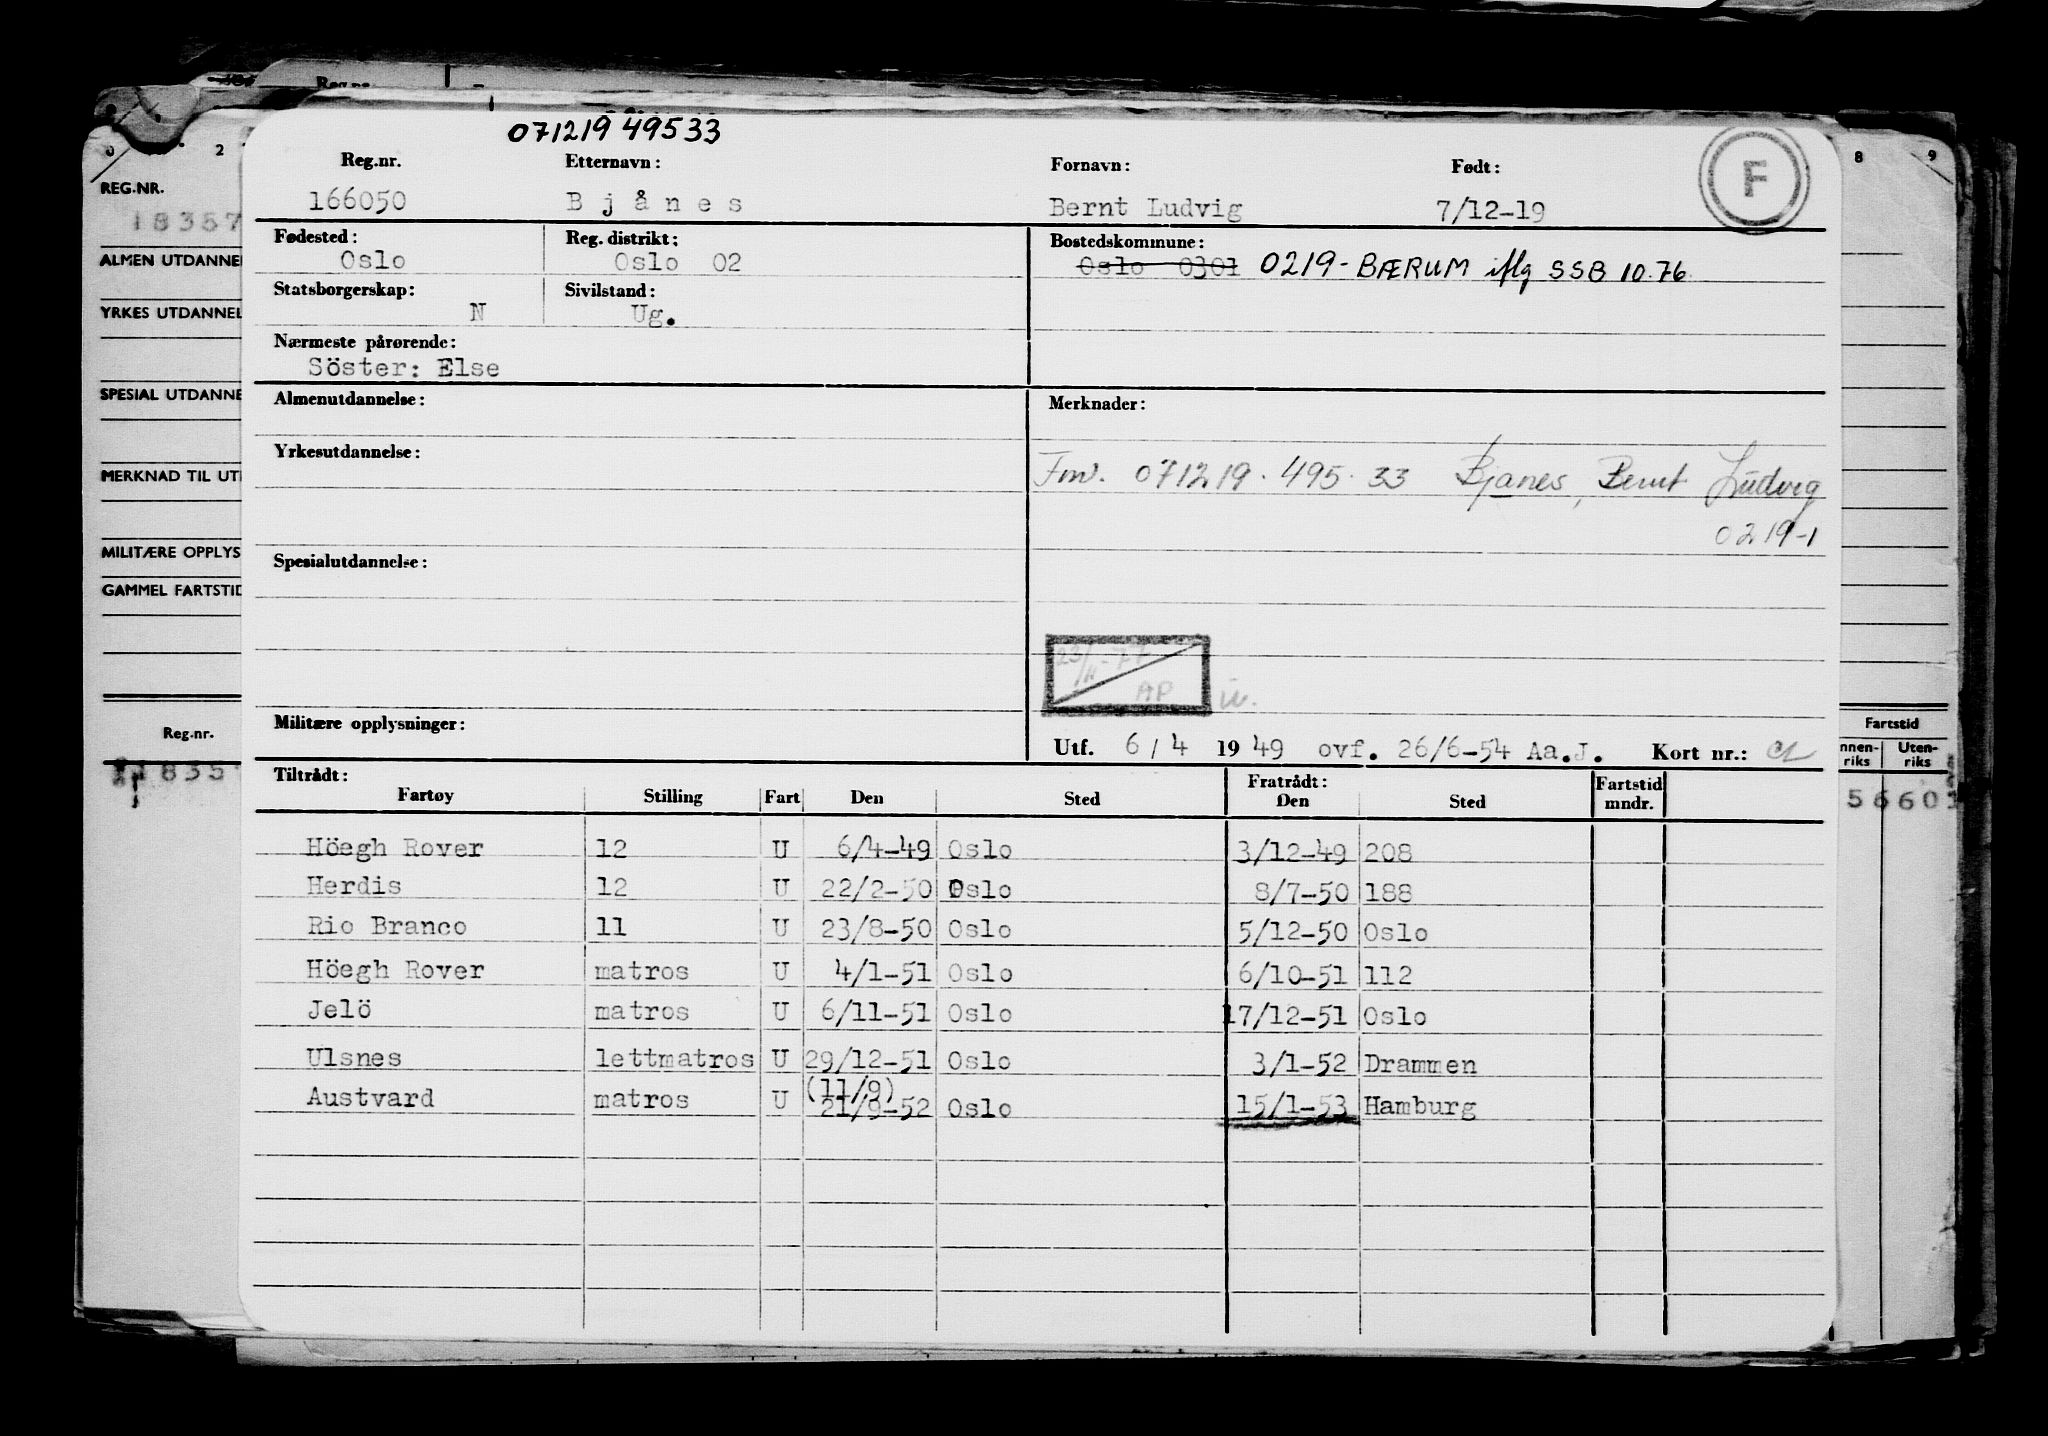 071219 49533
Reg.nr. Etternavn: Fornavn: Født:
166050 Bjånes Bernt Ludvig 7/12-19
F
Fødested: Reg. distrikt: Bostedskommune:
Oslo Oslo 02 Oslo 0301 0219-BÆRUM iflg SSB 10.76.
Statsborgerskap: Sivilstand:
N Ug.
Nærmeste pårørende:
Söster: Else
Almenutdannelse: Merknader:
Yrkesutdannelse:
Fnr. 071219.495.33 Bjanes, Bernt Ludvig
0219-1
Spesialutdannelse:
23/11-77
AP
Militære opplysninger:
Utf. 6/4 1949 ovf. 26/6-54 Aa.J. Kort nr.:
Tiltrådt: Fratrådt: Fartstid
Fartøy Stilling Fart Den Sted Den Sted mndr.
Höegh Rover 12 U 6/4-49 Oslo 3/12-49 208
Herdis 12 U 22/2-50 Oslo 8/7-50 188
Rio Branco 11 U 23/8-50 Oslo 5/12-50 Oslo
Höegh Rover matros U 4/1-51 Oslo 6/10-51 112
Jelö matros U 6/11-51 Oslo 17/12-51 Oslo
Ulsnes lettmatros U 29/12-51 Oslo 3/1-52 Drammen
(11/9)
Austvard matros U 21/9-52 Oslo 15/1-53 Hamburg
Reg.nr.
2
REG.NR.
18357
ALMEN UTDANNEL
YRKES UTDANNEL
SPESIAL UTDANNE
MERKNAD TIL UT
MILITÆRE OPPLYS
GAMMEL FARTSTID
Reg.nr.
1835
8 9
Fartstid
nnen- Uten-
riks riks
5660